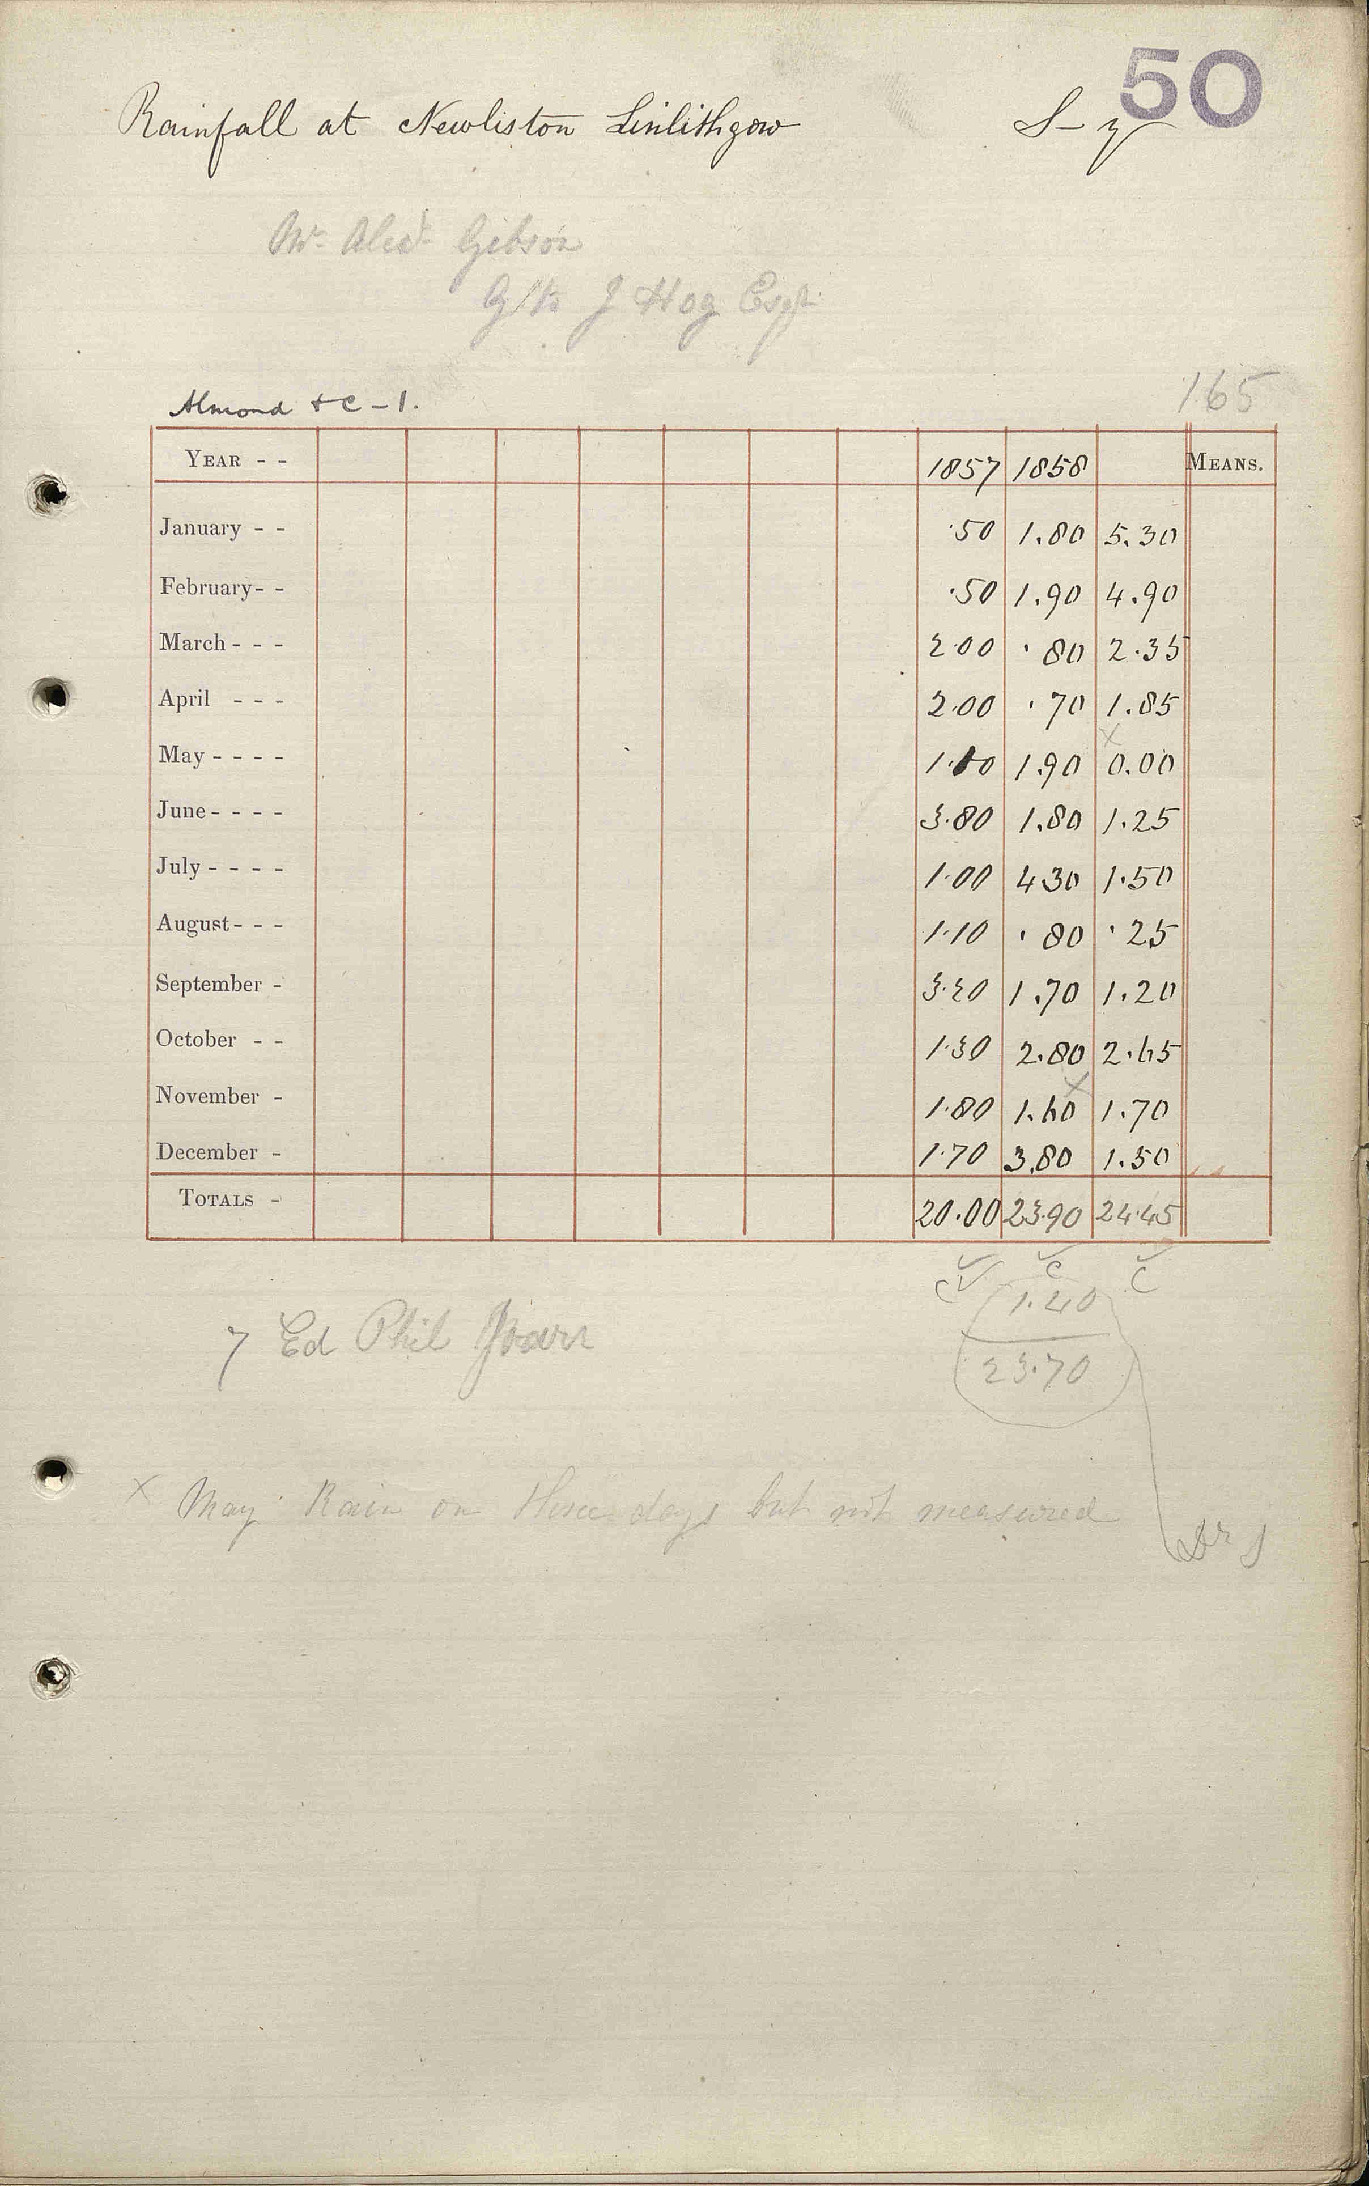 50
Rainfall at Newliston Linlithgow
Mr. Alexr. Gibson
G/to J Hog Esqr.
165
Almond &c - 1.
YEAR - - 1857 1858 MEANS.
January - - .50 1.80 5.30
February - - .50 1.90 4.90
March - - - 2.00 .80 2.35
April - - - 2.00 .70 1.85
x
May - - - - 1.10 1.90 0.00
June - - - - 3.80 1.80 1.25
July - - - - 1.00 4.30 1.50
August - - - 1.10 .80 .25
September - 3.20 1.70 1.20
October - - 1.30 2.80 2.65
x
November - 1.80 1.60 1.70
December - 1.70 3.80 1.50
TOTALS - 20.00 23.90 24.45
C C C
1.40
23.70
7 Ed Phil Journ
x May Rain on three days but not measured